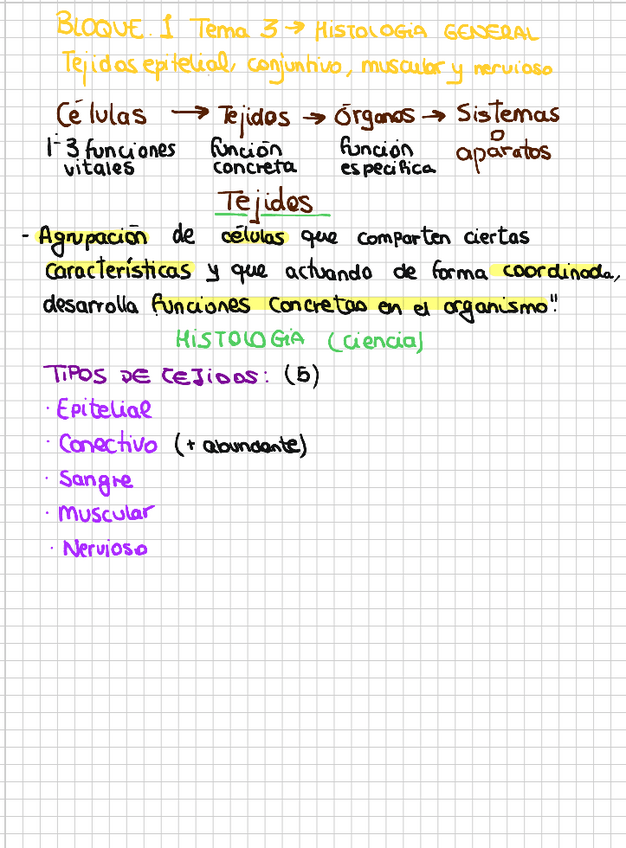 BLOQUE 1 Tema 3 → HISTOLOGIA GENERAL
Tejidos epitelial, conjuntivo, muscular y nervioso
Células → Tejidos → Órganos → Sistemas
o
aparatos
1-3 funciones vitales
función concreta
función especifica
Tejidos
- Agrupación de células que comparten ciertas
características y que actuando de forma coordinada,
desarrolla funciones concretas en el organismo".
HISTOLOGIA (ciencia)
TIPOS DE TEJIDOS: (5)
· Epitelial
· Conectivo (+ abundante)
· Sangre
· Muscular
· Nervioso